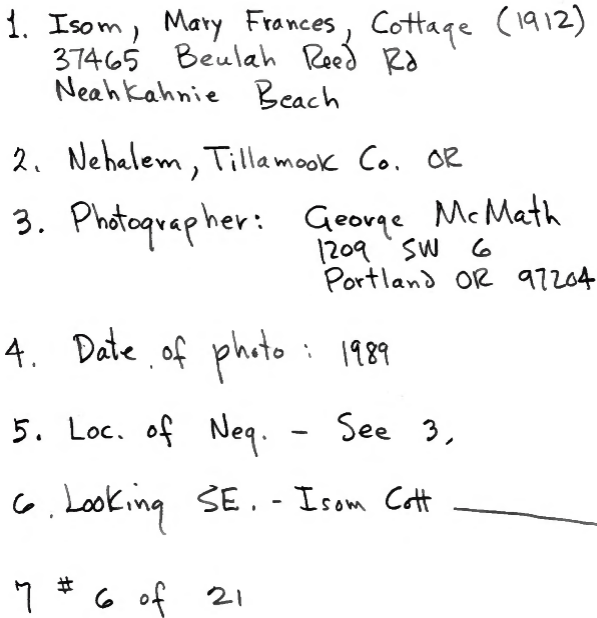 1. Isom, Mary Frances, Cottage (1912)
37465 Beulah Reed Rd
Neahkahnie Beach
2. Nehalem, Tillamook Co. OR
3. Photographer: George McMath
1209 SW 6
Portland OR 97204
4. Date of photo: 1989
5. Loc. of Neg. - See 3,
6. Looking SE. - Isom Cott
7 # 6 of 21